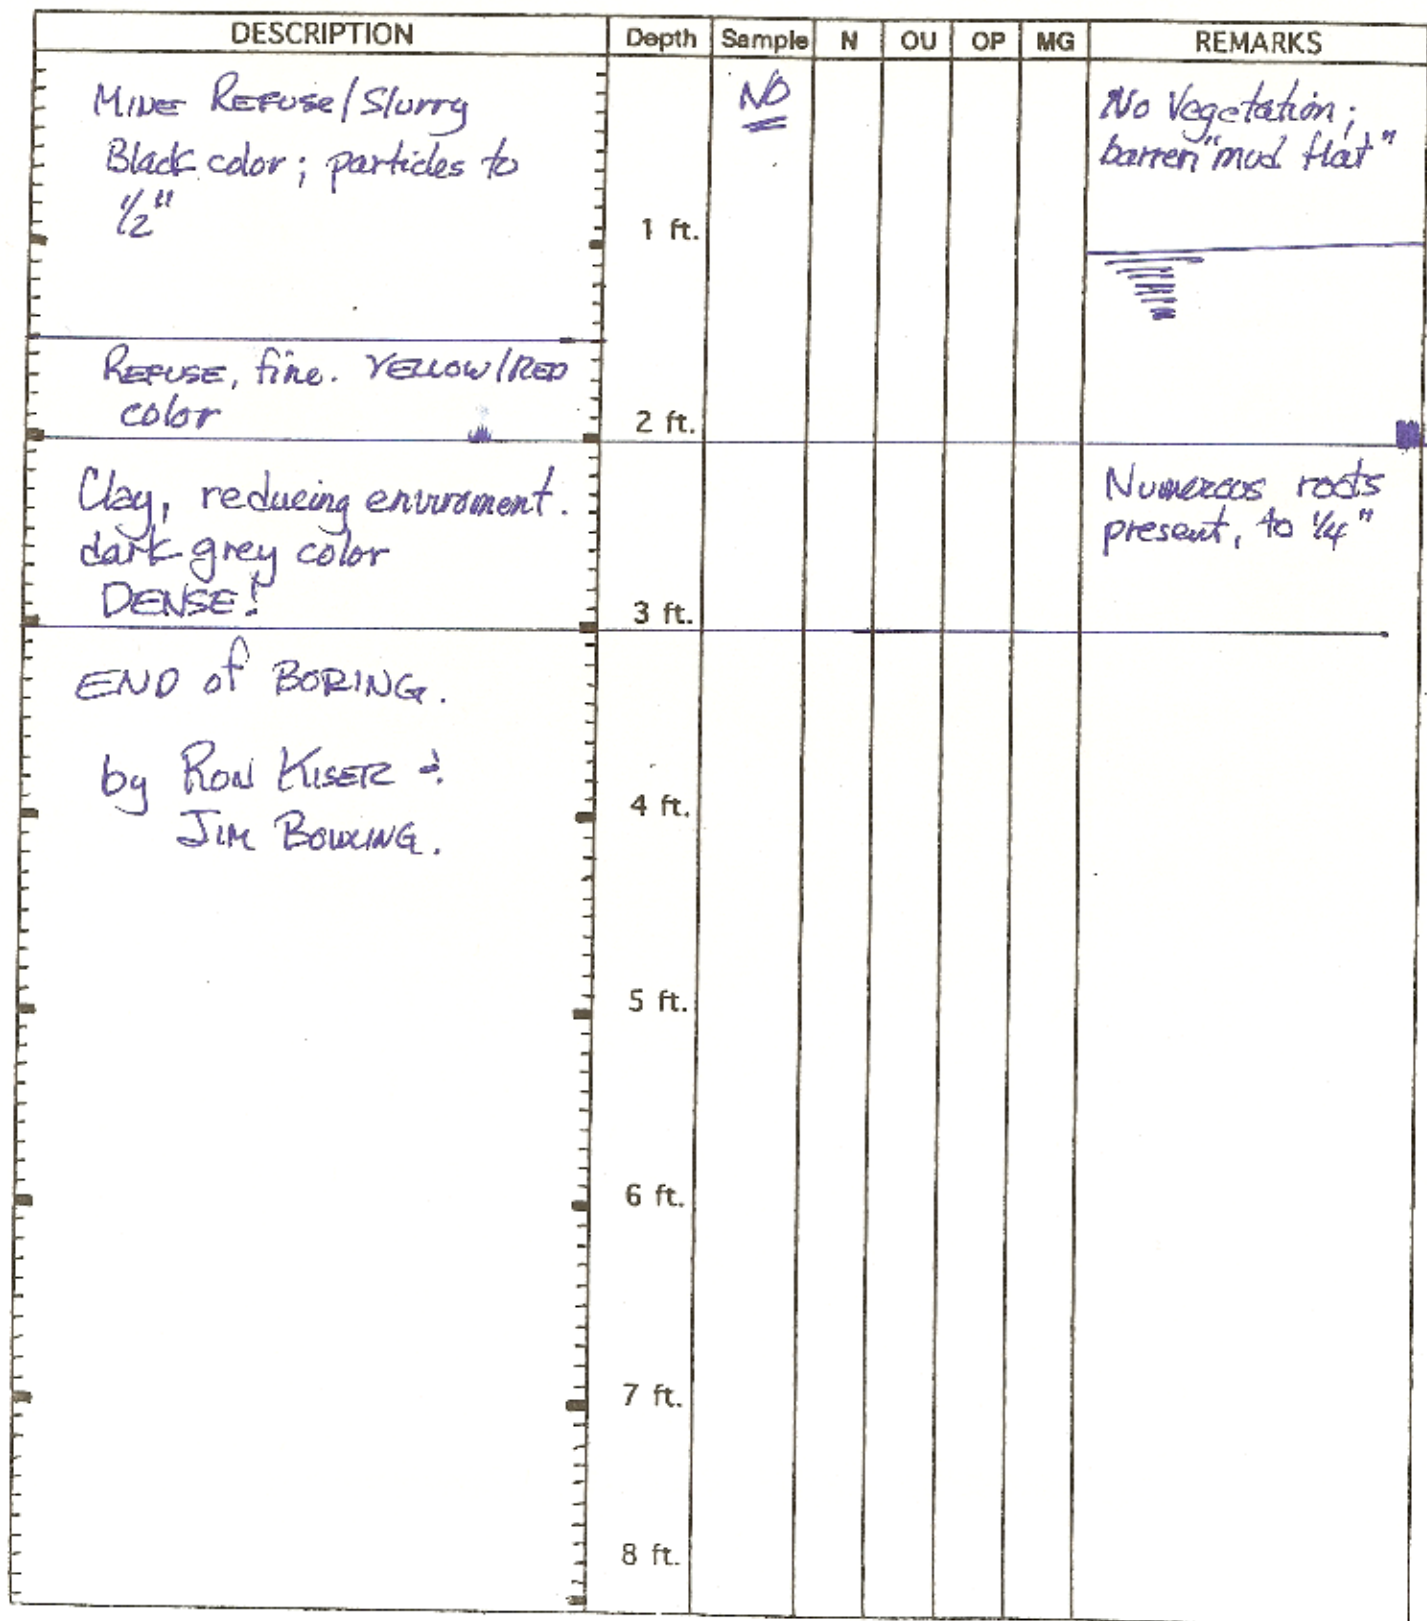 DESCRIPTION Depth Sample N OU OP MG REMARKS
MINE REFUSE/Slurry
Black color; particles to
1/2"
NO
No Vegetation;
barren "mud flat"
1 ft.
REFUSE, fine. YELLOW/RED
color
2 ft.
Clay, reducing enviroment.
dark grey color
DENSE!
Numerous roots
present, to 1/4"
3 ft.
END of BORING.
by RON KISER &
JIM BOWLING.
4 ft.
5 ft.
6 ft.
7 ft.
8 ft.